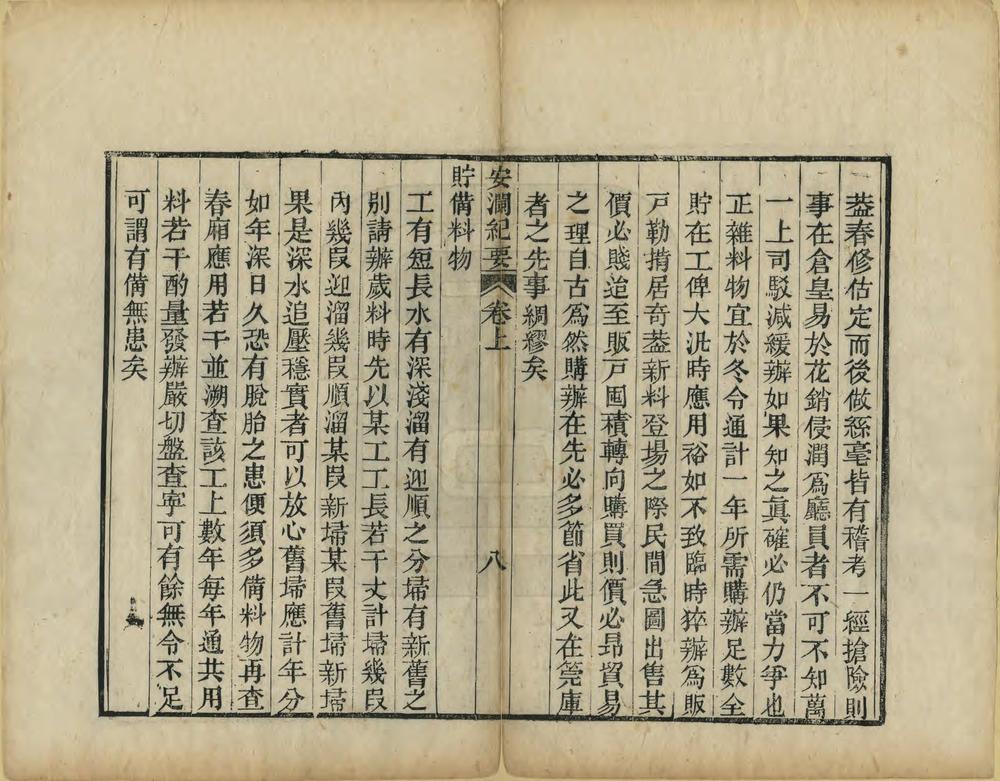 葢春修估定而後做絲毫皆有稽考一經搶險則
事在倉皇易於花銷侵潤為廳員者不可不知萬
一上司駁減緩辦如果知之眞確必仍當力爭也
正雜料物宜於冬令通計一年所需購辦足數全
貯在工俾大汛時應用裕如不致臨時猝辦為販
戸勒掯居奇葢新料登場之際民間急圖出售其
價必賤迨至販戸囤積轉向購買則價必昻貿易
之理自古為然購辦在先必多節省此又在筦庫
者之先事綢繆矣
安瀾紀要 卷上 八
貯備料物
工有短長水有深淺溜有迎順之分埽有新舊之
別請辦歲料時先以某工工長若干丈計埽幾段
內幾段迎溜幾段順溜某段新埽某段舊埽新埽
果是深水追壓穩實者可以放心舊埽應計年分
如年深日久恐有脫胎之患便須多備料物再查
春廂應用若干並溯查該工上數年每年通共用
料若干酌量發辦嚴切盤查寧可有餘無令不足
可謂有備無患矣